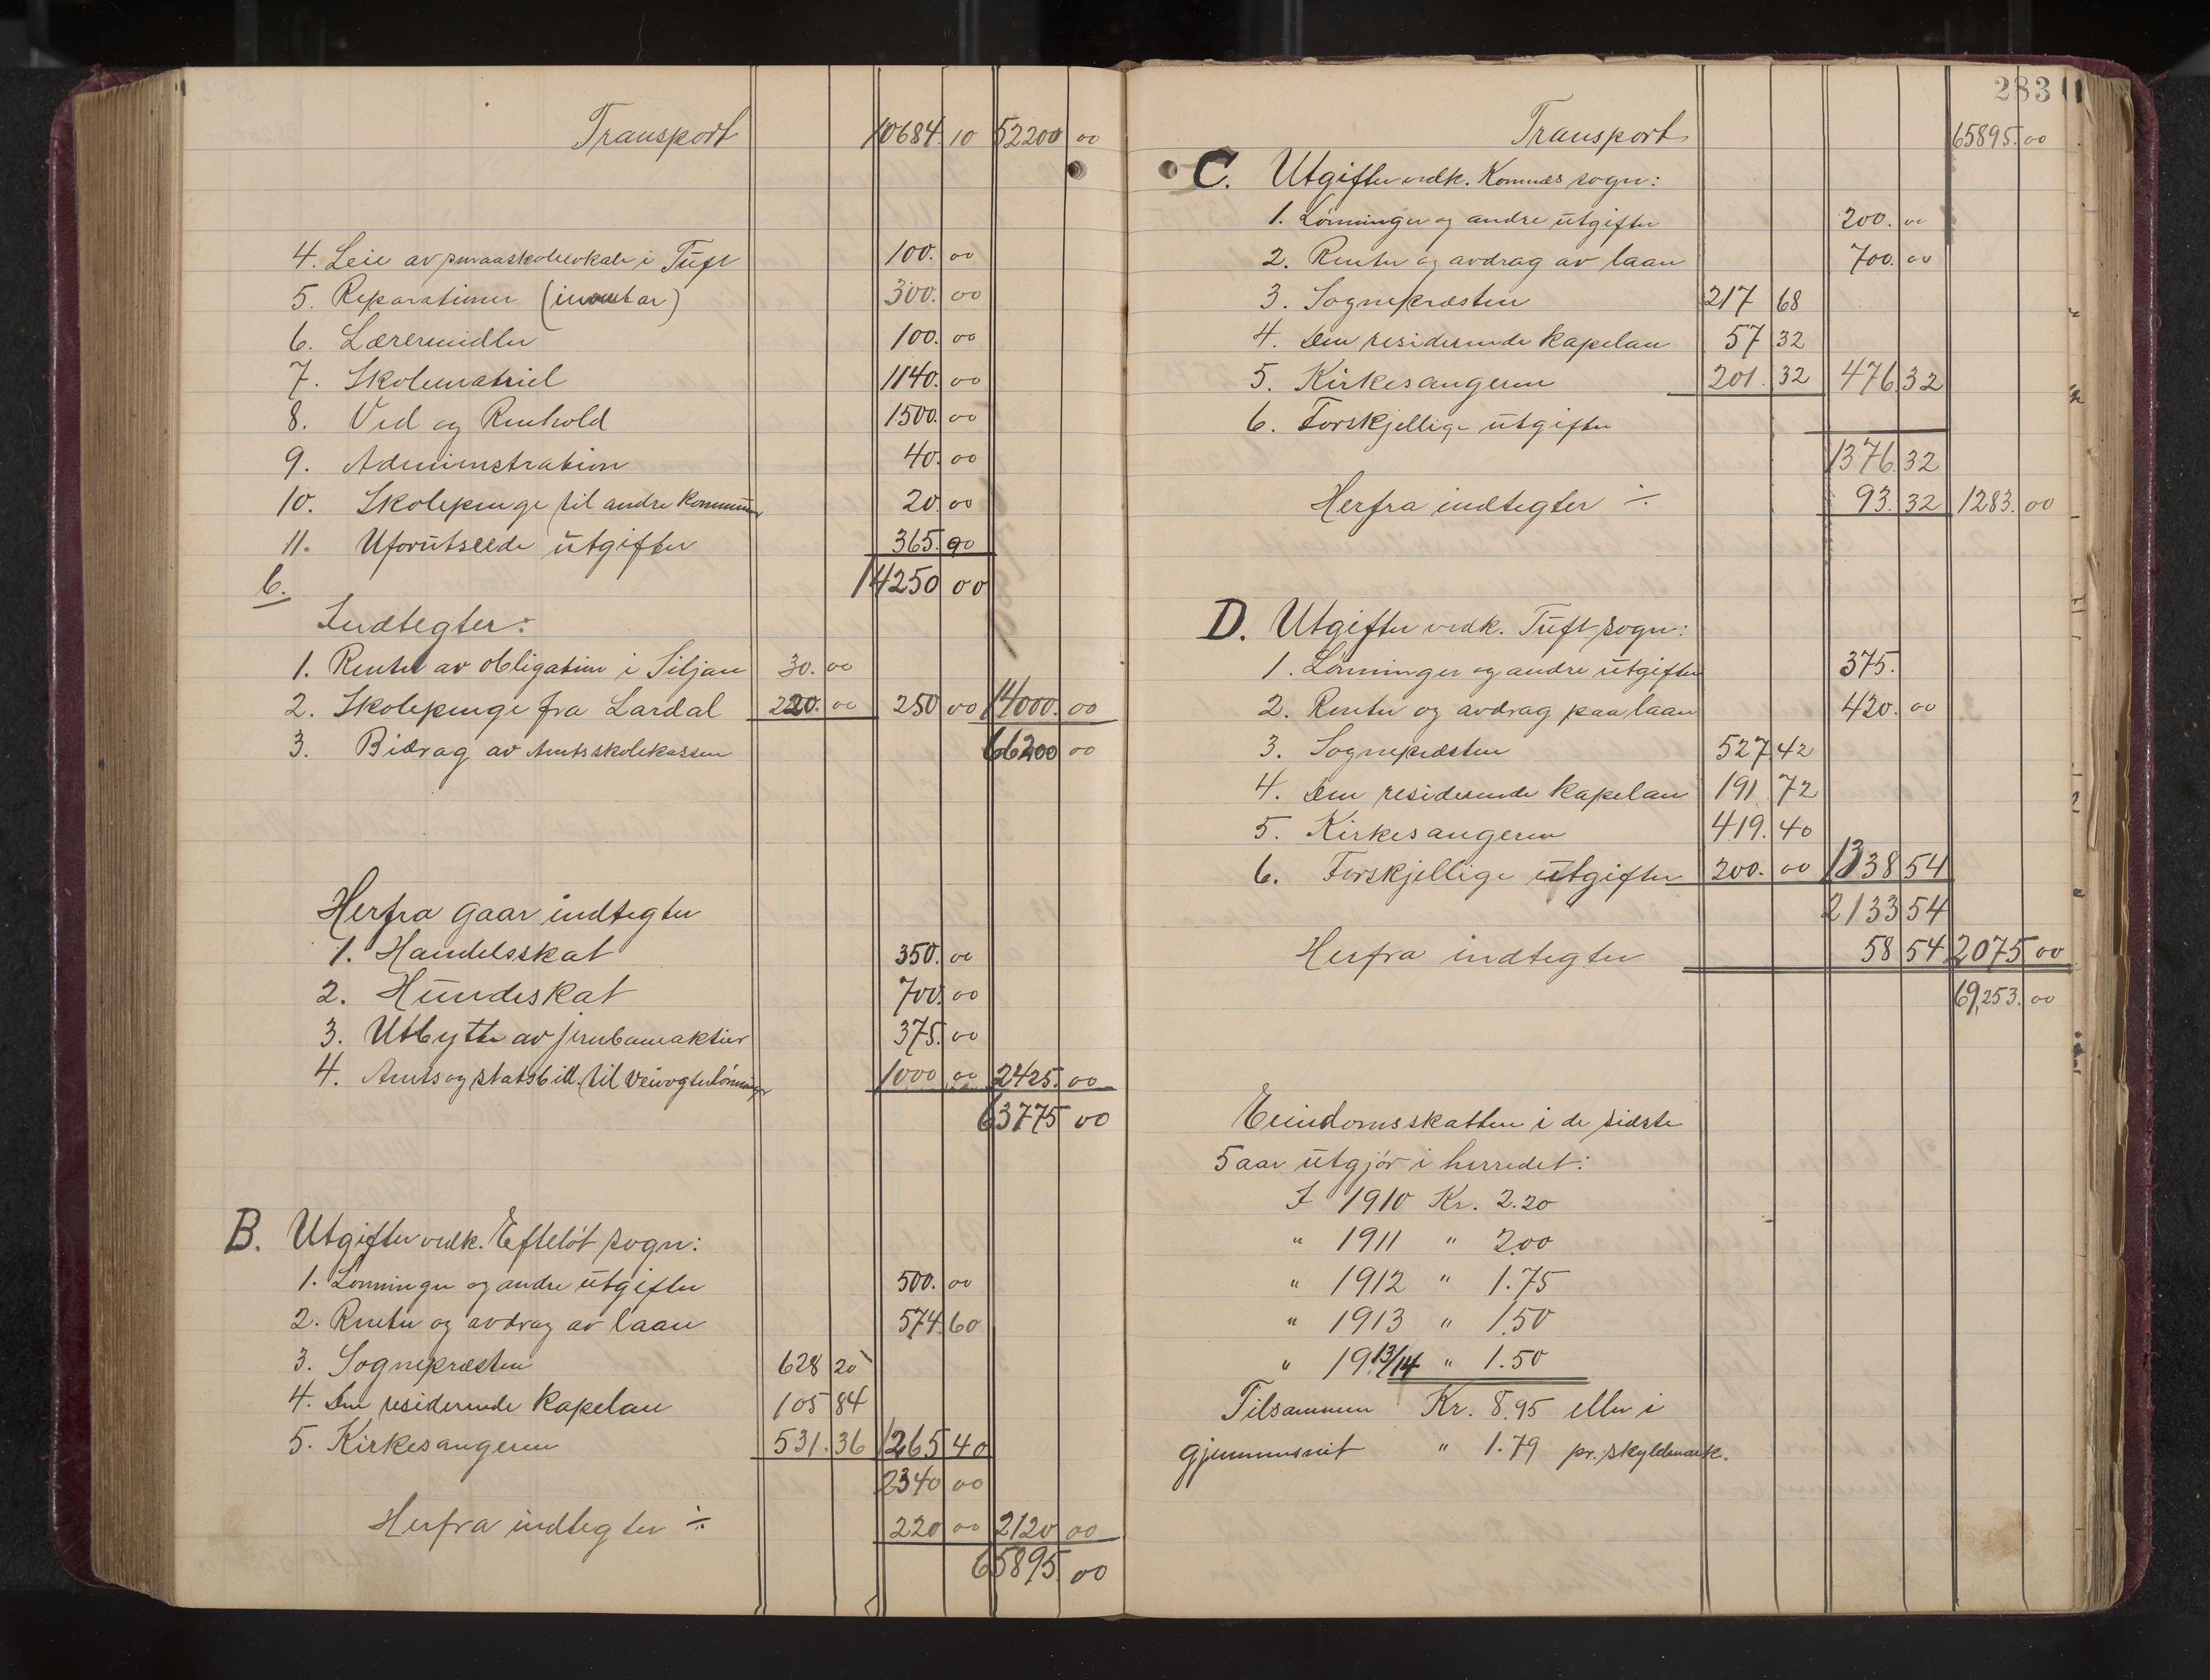 Transport 10684.10 52200 00
4. Leie av smaaskolelokale i Tuft 100. 00
5. Reparationer (inventar) 300. 00
6. Læremidler 100. 00
7. Skolematriel 1140. 00
8. Ved og Renhold 1500. 00
9. Administration 40. 00
10. Skolepenge til andre kommuner 20. 00
11. Uforutseede utgifter 365. 90
14250 00
b.
Indtegter:
1. Renter av obligation i Siljan 30. 00
2. Skolepenge fra Lardal 220. 00 250 00 14000. 00
3. Bidrag av Amtsskolekassen 66200 00
Herfra gaar indtegter
1. Handelsskat 350. 00
2. Hundeskat 700. 00
3. Utbytte av jernbaneaktier 375. 00
4. Amts og statsbidr. til veivogterlønninger 1000 00 2425. 00
63775 00
B. Utgifter vedk. Efteløt sogn:
1. Lønninger og andre utgifter 500. 00
2. Renter og avdrag av laan 574.60
3. Sognepræsten 628 20
4. Den residerende kapelan 105 84
5. Kirkesangeren 531. 36 1265 40
2340 00
Herfra indtegter ÷ 220 00 2120 00
65895. 00
283
Transport 65895. 00
C. Utgifter vedk. Komnes sogn:
1. Lønninger og andre utgifter 200. 00
2. Renter og avdrag av laan 700. 00
3. Sognepræsten 217 68
4. Den residerende kapelan 57 32
5. Kirkesangeren 201. 32 476 32
6. Forskjellige utgifter
1376. 32
Herfra indtegter ÷ 93. 32 1283. 00
D. Utgifter vedk. Tuft sogn:
1. Lønninger og andre utgifter 375.
2. Renter og avdrag paa laan 420. 00
3. Sognepræsten 527 42
4. Den residerende kapelan 191 72
5. Kirkesangeren 419. 40
6. Forskjellige utgifter 200. 00 1338 54
2133 54
Herfra indtegter 58 54 2075 00
69,253. 00
Eiendomsskatten i de sidste
5 aar utgjør i herredet:
I 1910 Kr. 2.20
" 1911 " 2.00
" 1912 " 1.75
" 1913 " 1.50
" 1913/14 " 1.50
Tilsammen Kr. 8.95 eller i
gjennemsnit " 1.79 pr. skyldmark.